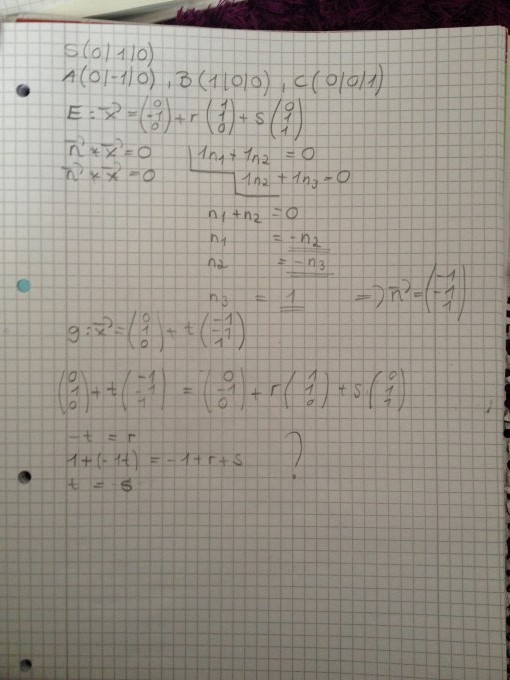 S(0|1|0)
A(0|-1|0), B(1|0|0), C(0|0|1)
E: x⃗ = (0 -1 0) + r (1 1 0) + s (0 1 1)
n⃗ * x⃗ = 0 1n₁ + 1n₂ = 0
n⃗ * x⃗ = 0 1n₂ + 1n₃ = 0
n₁ + n₂ = 0
n₁ = -n₂
n₂ = -n₃
n₃ = 1 => n⃗ = (-1 -1 1)
g: x⃗ = (0 1 0) + t (-1 -1 1)
(0 1 0) + t (-1 -1 1) = (0 -1 0) + r (1 1 0) + s (0 1 1)
-t = r
1+(-1t) = -1+r+s ?
t = s